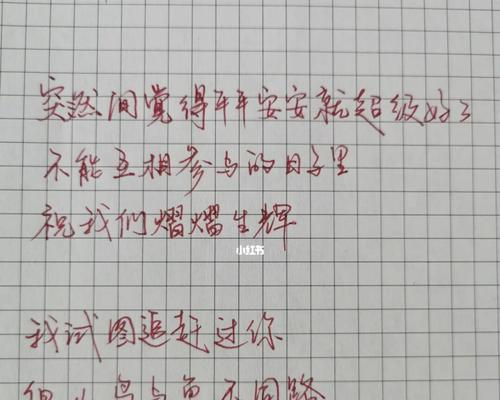 突然间觉得平平安安就超级好了
不能互相参与的日子里
祝我们熠熠生辉
小红书
我试图追赶过你
但 鸟与鱼不同路